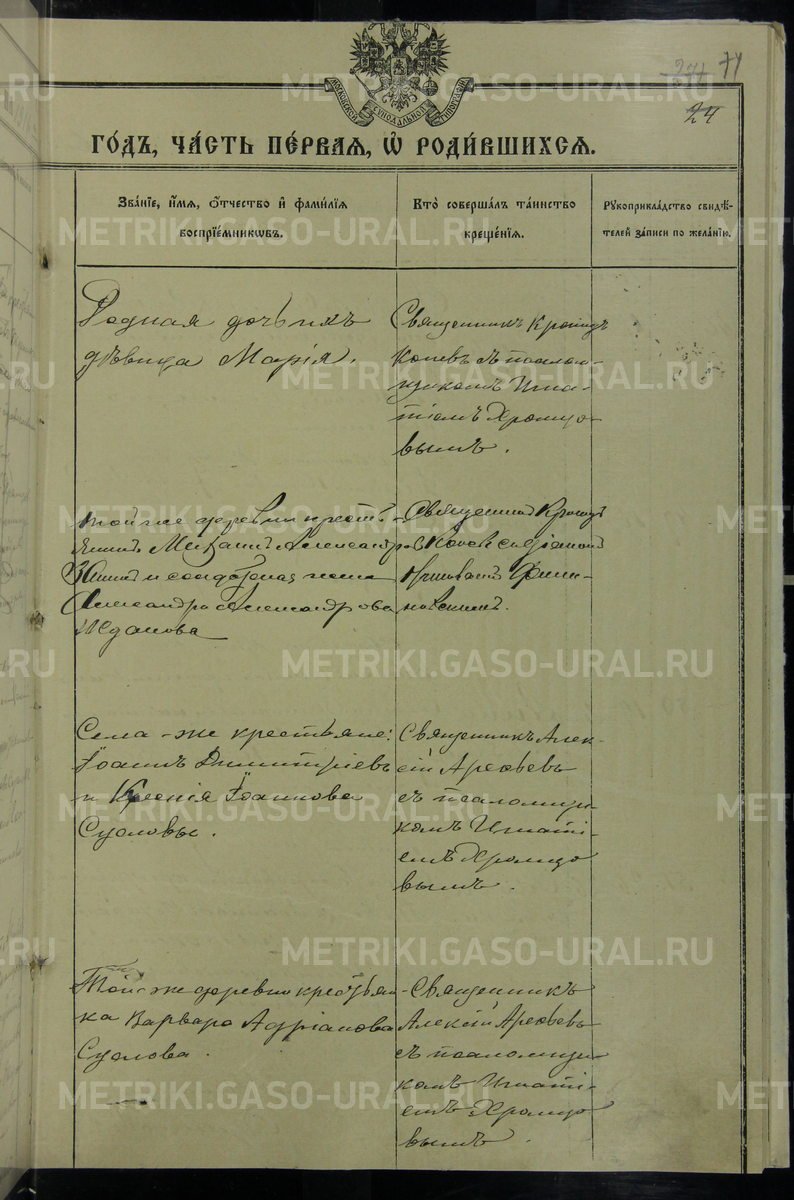 METRIKI.GASO-URAL.RU
271 71
24
МОСКОВСКОЙ СѴНОДАЛЬНОЙ ТИПОГРАФІИ
ГО́ДЪ, ЧА́СТЬ ПЕ́РВАЯ, Ѡ҆ РОДИ́ВШИХСЯ.
Зва́нїе, и҆́мя, ѻ҆́тчество и҆ фами́лїя
воспрїе́мникѡвъ.
Кто̀ соверша́лъ та́инство
креще́нїя.
Рꙋкоприкла́дство свидѣ́-
телей за́писи по жела́нїю.
Родная дочь ихъ
дѣвица Марія.
Священникъ Кронидъ
Копевъ съ псалом-
щикомъ Игна-
тіемъ Хромцо-
вымъ.
той же деревни крестья-
нинъ Александр
и солдатская жена
Александра Александрова
Жданова
Священникъ Кронидъ
діакономъ
Села-же крестьяне:
Іоаннъ Димитріевъ
и Ксенія Іоаннова
Сусловы.
Священникъ Алек-
сій Арефьевъ
съ псаломщи-
комъ Игнаті-
емъ Хромцо
вымъ.
Той-же деревни крестьян
ка Варвара Адріанова
Суслова.
Священникъ
Алексій Арефьевъ
съ псаломщи-
комъ Игнаті-
емъ Хромцо
вымъ.